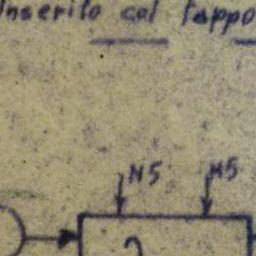 Inserito col Tappo
N5 N5
2